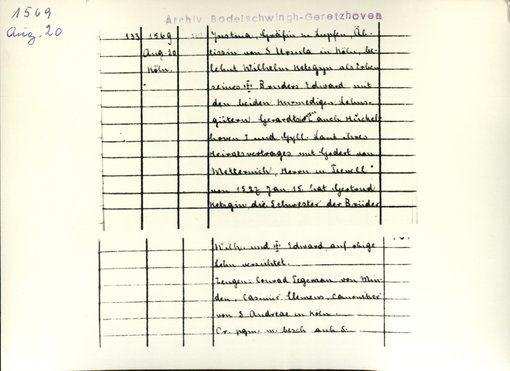 1569
Aug. 20
Archiv Bodelschwingh-Geretzhoven
133 1569 Justina, Gräfin zu Lupfen, Äb-
Aug. 20 tissin von S. Ursula in Köln, be-
Köln. lehnt Wilhelm Ketzgyn als Erben
seines Bruders Edward mit
den beiden Kurmedigen Lehns-
gütern auch Hüchel-
hoven I und Gyll. Laut ihres
Heiratsvertrages mit Godert von
Metternich, Herrn in
von 1527 Jan. 15. hat
Ketzgin die Schwester der Brüder
Wilh. und Edward auf obige
Lehn verzichtet.
Zeugen: Conrad Tegeman von Min-
den, Casimir Clemens, Canoniker
von S. Andreae in Köln.
Or. pgm. m. besch. anh. S.